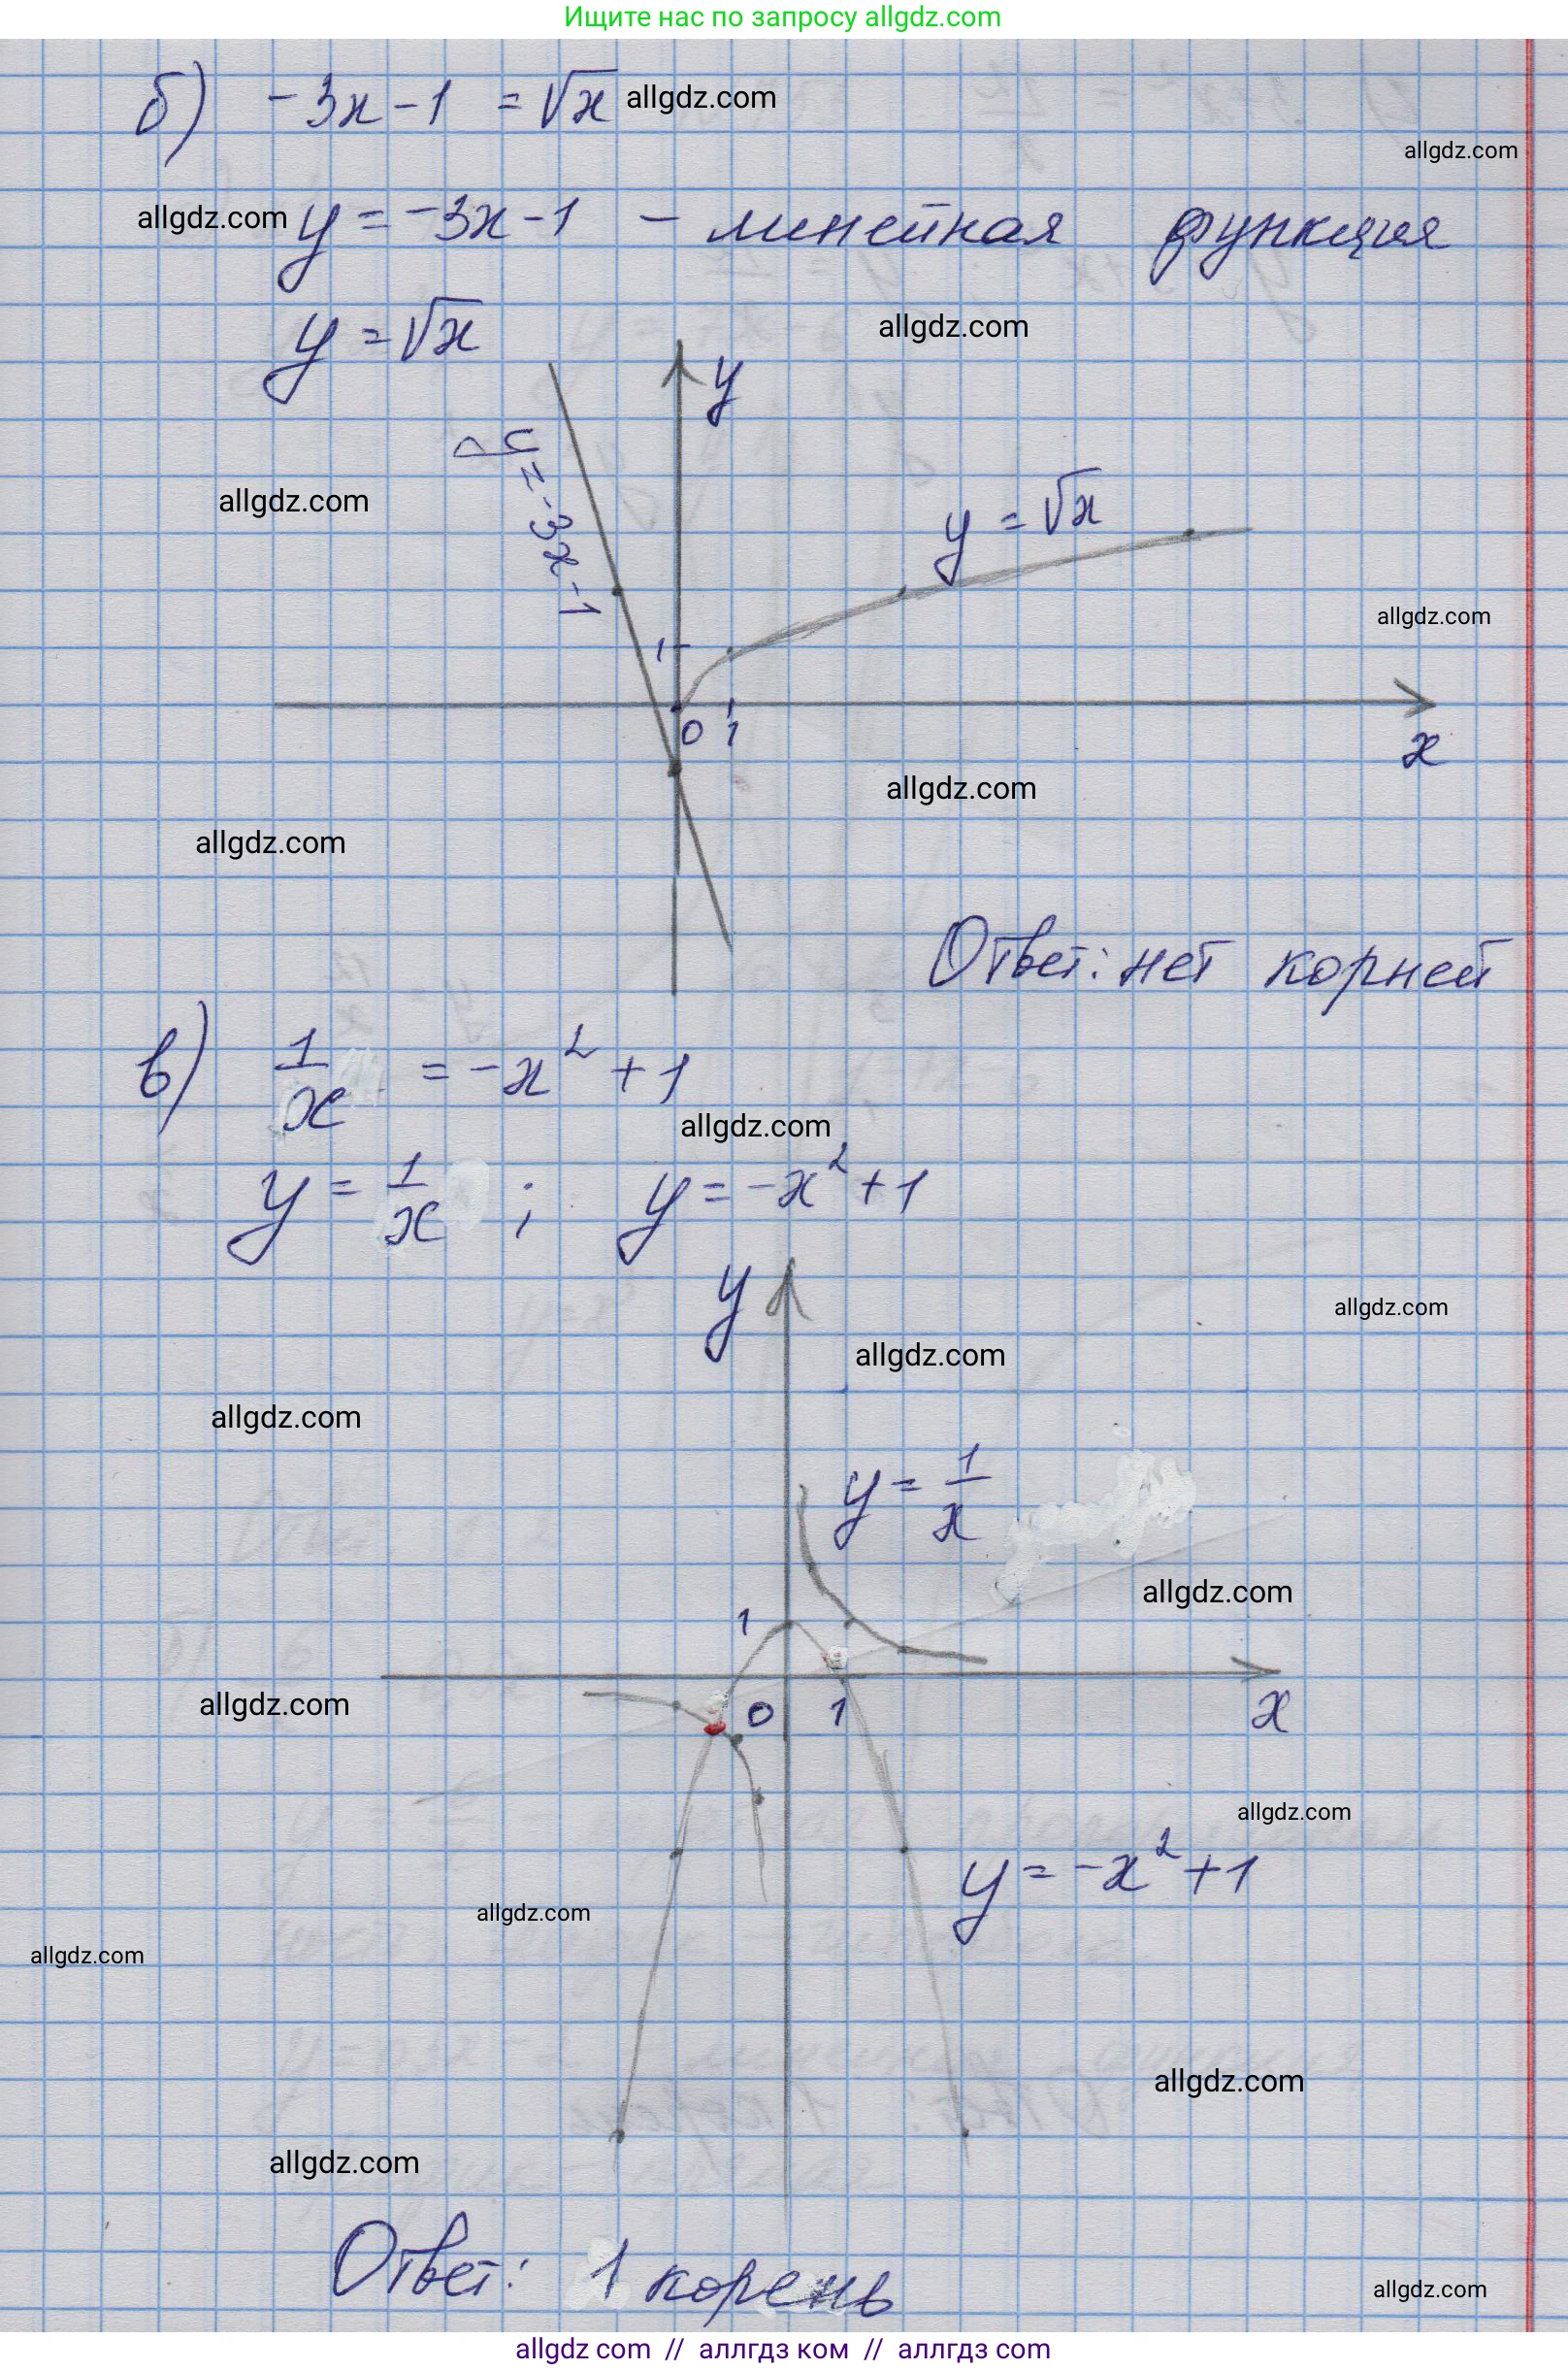 Ищите нас по запросу allgdz.com
б) -3x-1 = √x allgdz.com
allgdz.com
allgdz.com y = -3x-1 - линейная функция
y = √x allgdz.com
y
allgdz.com y = -3x-1 y = √x
allgdz.com
1
0 1 x
allgdz.com
allgdz.com
Ответ: нет корней
в) 1/x = -x² + 1
allgdz.com
y = 1/x ; y = -x² + 1
y allgdz.com
allgdz.com
allgdz.com
y = 1/x
allgdz.com
1
allgdz.com 0 1 x
allgdz.com
y = -x² + 1
allgdz.com
allgdz.com
allgdz.com
allgdz.com
Ответ: 1 корень
allgdz.com
allgdz com // аллгдз ком // аллгдз com